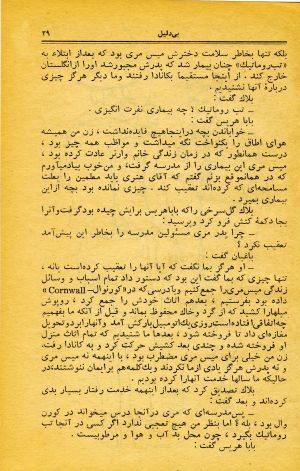 بی‌دلیل ۲۹
بلکه تنها بخاطر سلامت دخترش میس مری بود که بعداز ابتلاء به
«تب‌روماتیك» چنان بیمار شد که پدرش مجبورشد اورا ازانگلستان
خارج کند. از اینجا مستقیماً بکانادا رفتند وما دیگر هرگز چیزی
درباره آنها نشنیدیم.
بلاك گفت:
ـ تب روماتیك؟ چه بیماری نفرت انگیزی.
بابا هریس گفت:
ـ خواباندن بچه دراینجاهیچ فایده‌نداشت، زن من همیشه
هوای اطاق را یکنواخت نگه میداشت و مواظب همه چیز بود،
درست همانطور که در زمان زندگی خانم وارنر عادت کرده بود،
میس مری این بیماری را از مدرسه گرفت، و من‌خوب بیادمیآورم
که در همانموقع بزنم گفتم که آقای هنری باید معلمین را بعلت
مسامحه‌ای که کرده‌اند تعقیب کند. چیزی نمانده بود بچه ازاین
بیماری بمیرد.
بلاك گل‌سرخی راکه باباهریس برایش چیده بودگرفت‌وآنرا
بجا دکمهٔ کتش فرو کرد وپرسید:
ـ چرا پدر مری مسئولین مدرسه را بخاطر این پیش‌آمد
تعقیب نکرد؟
باغبان گفت:
ـ او هرگز بما نگفت که آیا آنها را تعقیب کرده‌است یانه،
تنها چیزی که بما گفت این بود که دستور داد تمام اسباب و وسائل
زندگی میس‌مری‌را جمع‌کنیم وبآدرسی‌که دره‌کورنوال‌ـ Cornwall»
داده بود بفرستیم، بعدهم اثاث خودش را جمع کرد، روپوش
مبلهارا کشید که از گرد وخاك محفوظ بماند و قبل از آنکه ما بفهمیم
چه‌اتفاقی‌افتاده‌است‌روزی‌یك‌اتومبیل‌بارکش آمد وآنهارابردوتحویل
مغازه‌ای داد تا فروخته شود، بعدها ما شنیدیم که تمام اثاث منزل
او فروخته شده و چندی بعد کشیش حرکت کرد و به کانادا رفت،
زن من خیلی برای میس مری مضطرب بود، با اینهمه نه میس مری
و نه پدرش هرگز یادی ازما نکردند ویك‌کلمه‌هم برایمان ننوشتند،در
حالیکه ما سالها خدمت آنهارا کرده بودیم.
بلاك تصدیق کرد که بعداز اینهمه خدمت رفتار بسیار بدی
کرده‌اند و بعد گفت:
ـ پس‌مدرسه‌ای که مری درآنجا درس میخواند در کورن
وال بود، بله؟ اما بنظر من هیچ تعجبی ندارد اگر کسی در آنجا تب
روماتیك بگیرد، چون محل بد آب و هوا و مرطوبیست.
بابا هریس گفت: